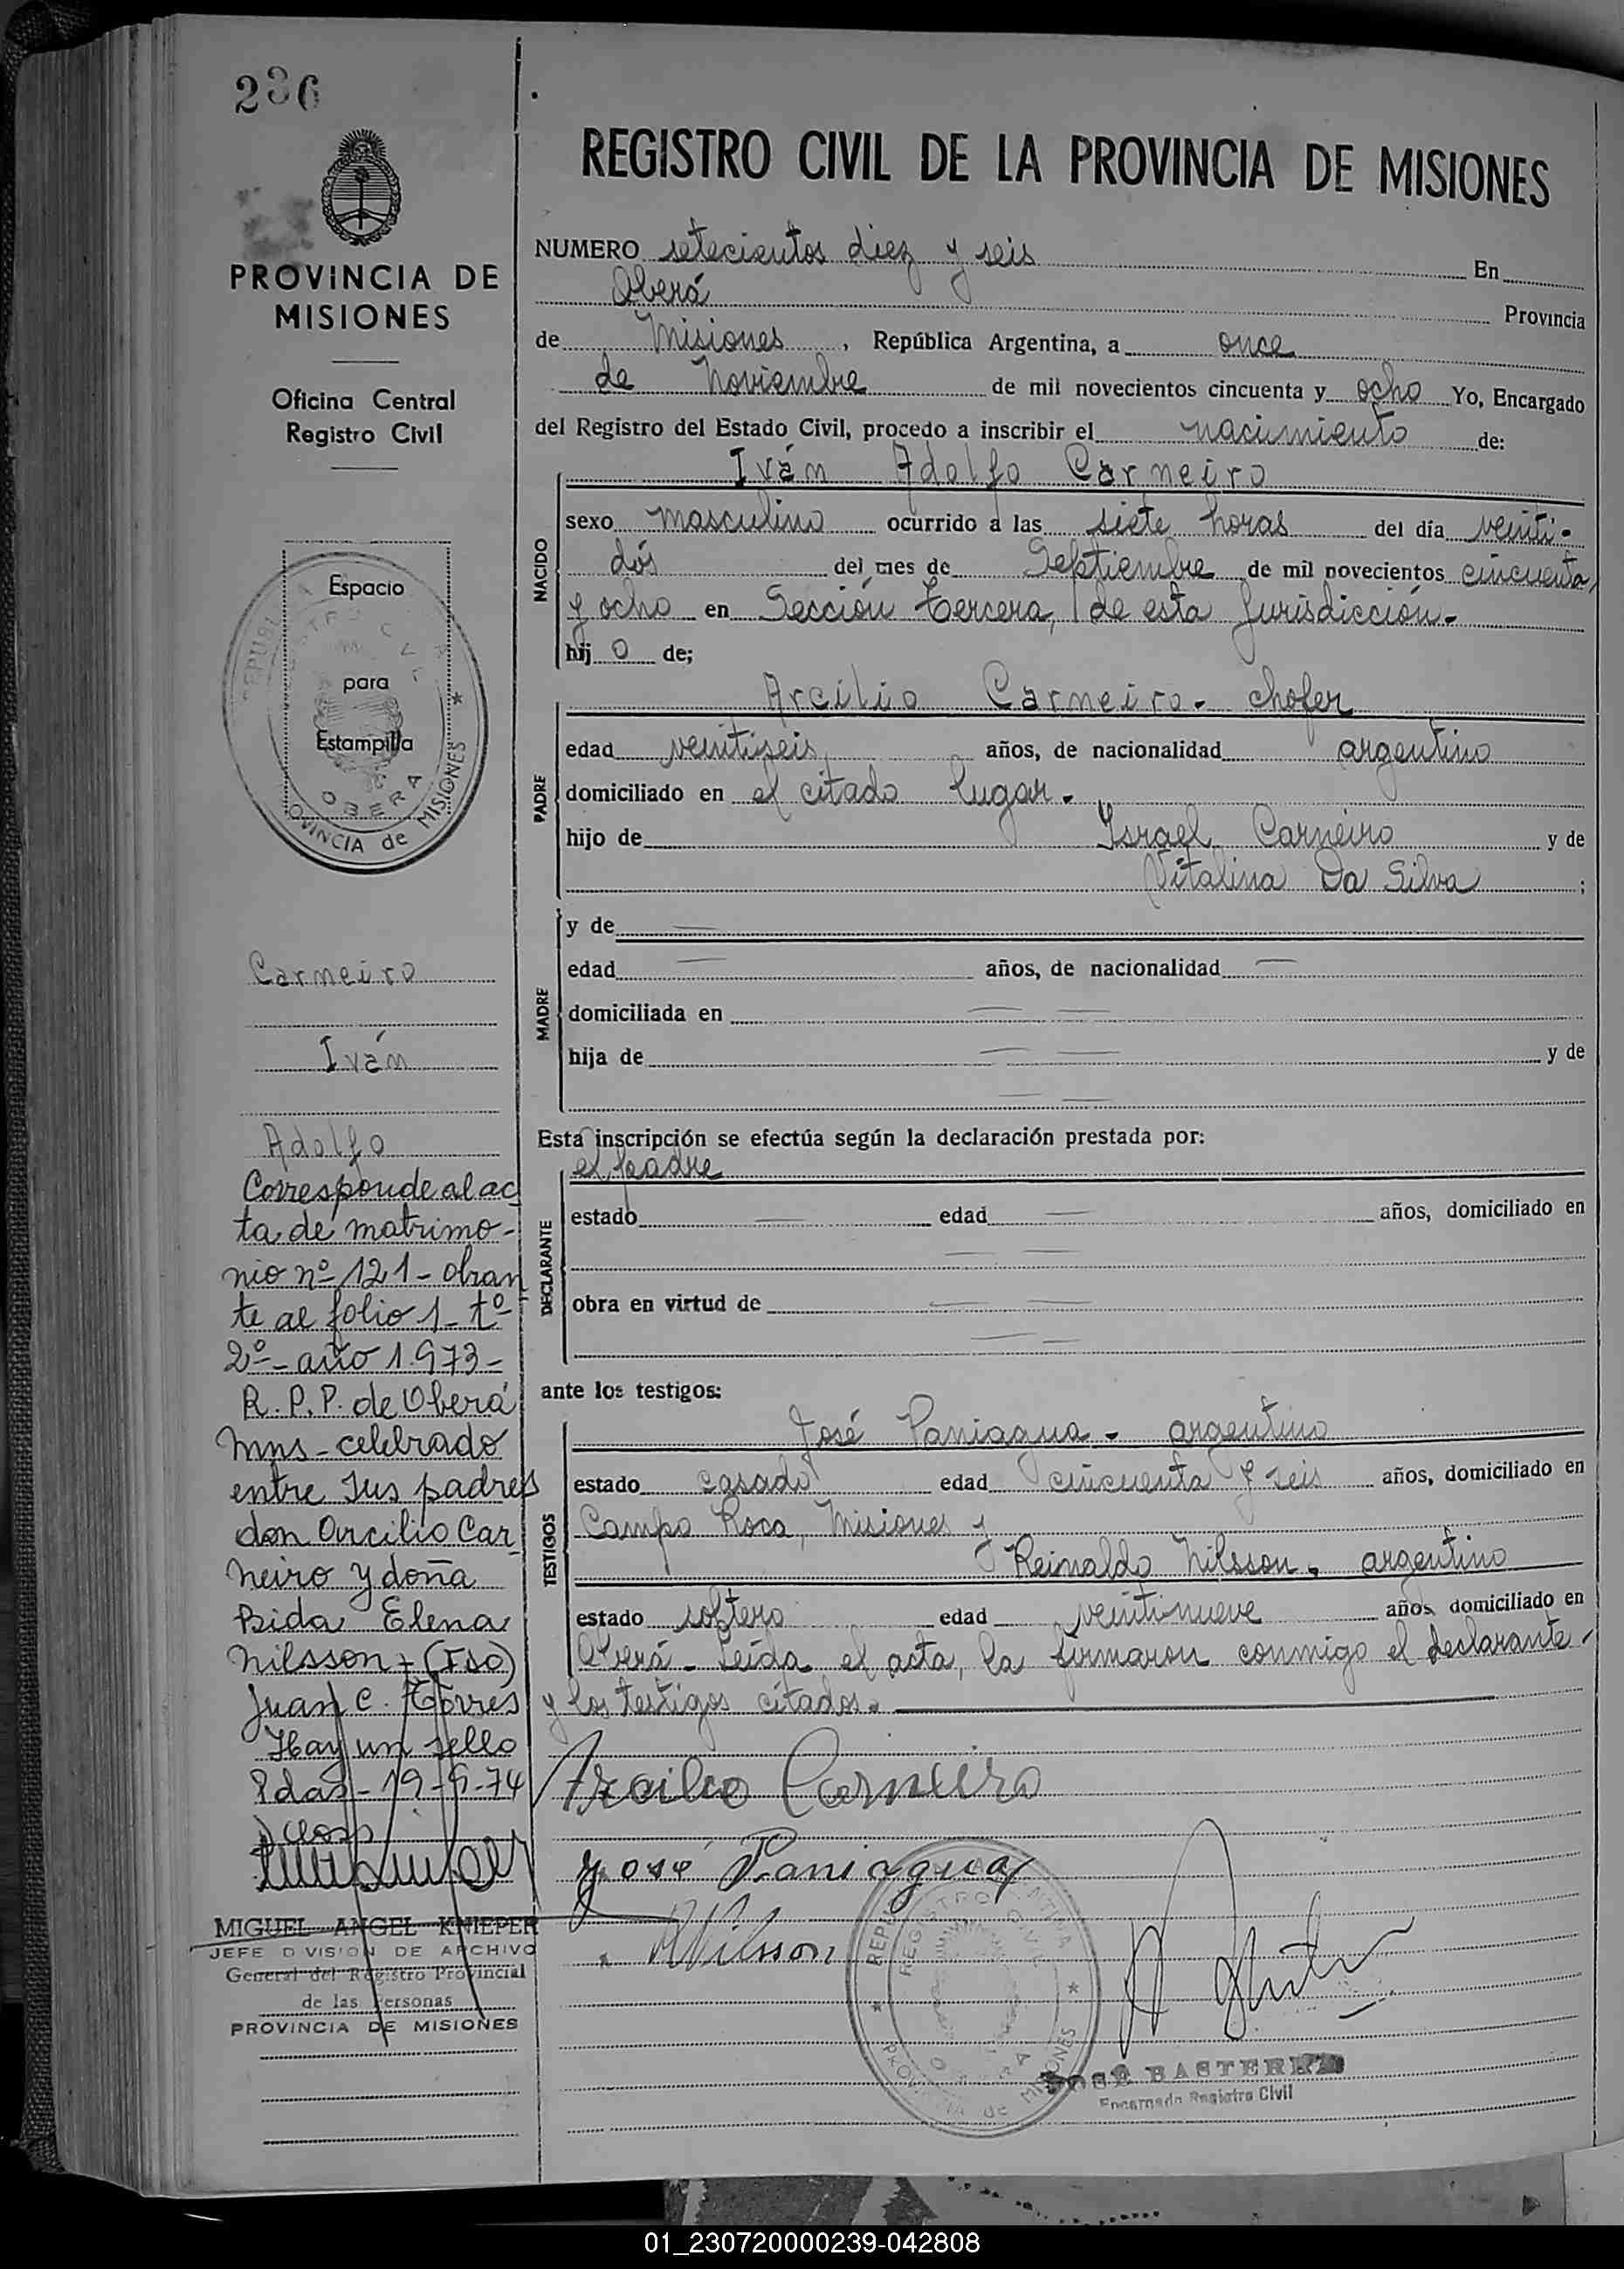 236
PROVINCIA DE
MISIONES
Oficina Central
Registro Civil
Espacio
para
Estampilla
OBERA
PROVINCIA de MISIONES
Carneiro
Iván
Adolfo
Corresponde al ac
ta de matrimo-
nio nº 121 - obran
te al folio 1 - tº
2º - año 1.973 -
R. P. P. de Oberá
Mns - celebrado
entre sus padres
don Arcilio Car
neiro y doña
Elena
Nilsson - (Fdo)
Juan C. Torres
Hay un sello
Pdas - 19-9-74
MIGUEL ANGEL KNIEPER
JEFE DIVISION DE ARCHIVO
General del Registro Provincial
de las Personas
PROVINCIA DE MISIONES
REGISTRO CIVIL DE LA PROVINCIA DE MISIONES
NUMERO setecientos diez y seis En
Oberá Provincia
de Misiones, República Argentina, a once
de Noviembre de mil novecientos cincuenta y ocho Yo, Encargado
del Registro del Estado Civil, procedo a inscribir el nacimiento de:
NACIDO
Iván Adolfo Carneiro
sexo masculino ocurrido a las siete horas del día veinti-
dós del mes de Septiembre de mil novecientos cincuenta
y ocho en Sección Tercera, de esta Jurisdicción.-
hij o de;
PADRE
Arcilio Carneiro - chofer
edad veintiseis años, de nacionalidad argentino
domiciliado en el citado lugar.-
hijo de Israel Carneiro y de
Vitalina Da Silva ;
MADRE
y de —
edad — años, de nacionalidad —
domiciliada en — —
hija de — — y de
— —
Esta inscripción se efectúa según la declaración prestada por:
DECLARANTE
el padre
estado — edad — años, domiciliado en
— —
obra en virtud de — —
— —
ante los testigos:
TESTIGOS
José Paniagua - argentino
estado casado edad cincuenta y seis años, domiciliado en
Campo Roca, Misiones y
Reinaldo Nilsson, argentino
estado soltero edad veintinueve años domiciliado en
Oberá - Leída el acta, la firmaron conmigo el declarante
y los testigos citados.-
Arcilio Carneiro
José Paniagua
RNilsson
REGISTRO CIVIL
PROVINCIA de MISIONES
JOSÉ BASTERRA
Encargado Registro Civil
01_230720000239-042808